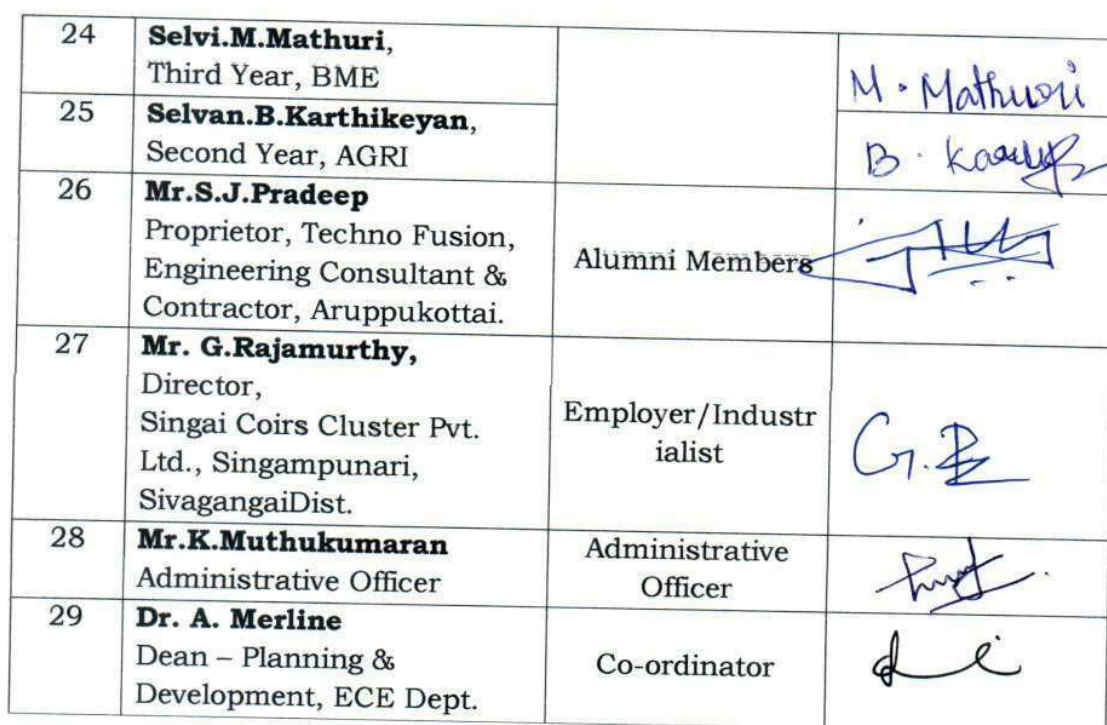 24
Selvi.M.Mathuri,
Third Year, BME
M. Mathuri
25
Selvan.B.Karthikeyan,
Second Year, AGRI
B.
26
Mr.S.J.Pradeep
Proprietor, Techno Fusion,
Engineering Consultant &
Contractor, Aruppukottai.
Alumni Members
27
Mr. G.Rajamurthy,
Director,
Singai Coirs Cluster Pvt.
Ltd., Singampunari,
SivagangaiDist.
Employer/Industr
ialist
G.
28
Mr.K.Muthukumaran
Administrative Officer
Administrative
Officer
29
Dr. A. Merline
Dean – Planning &
Development, ECE Dept.
Co-ordinator